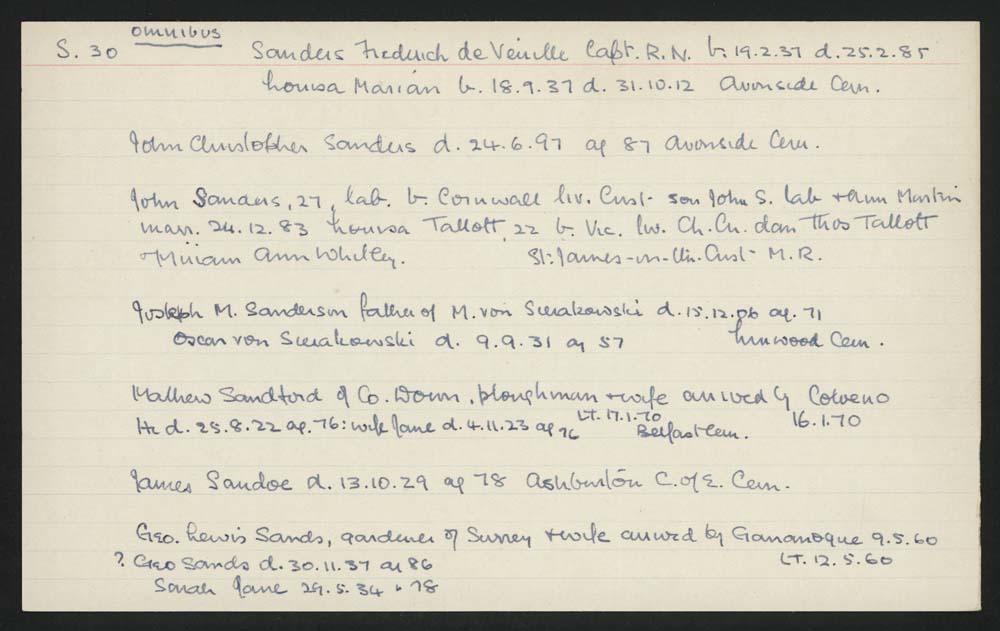 omnibus
S. 30 Sanders Frederick de Veulle Capt. R.N. b. 19.2.37 d. 25.2.85
Louisa Marian b. 18.9.37 d. 31.10.12 Avonside Cem.
John Christopher Sanders d. 24.6.97 ag 87 Avonside Cem.
John Sanders, 27, lab. b. Cornwall liv. Cust. son John S. lab + Ann Martin
marr. 24.12.83 Louisa Tallott, 22 b. Vic. liv. Ch.Ch. dau Thos Tallott
+ Miriam Ann Whitley. St. James-on-the-Cust M.R.
Joseph M. Sanderson father of M. von Sierakowski d. 15.12.06 ag. 71
Oscar von Sierakowski d. 9.9.31 ag 57 Linwood Cem.
Mathew Sandford of Co. Down, ploughman + wife arrived by Colveno
He d. 25.8.22 ag. 76: wife Jane d. 4.11.23 ag 76 LT. 17.1.70 Belfast Cem. 16.1.70
James Sandoe d. 13.10.29 ag 78 Ashburton C. of E. Cem.
Geo. Lewis Sands, gardener of Surrey + wife arrived by Gananoque 9.5.60
? Geo Sands d. 30.11.37 ag 86 LT. 12.5.60
Sarah Jane 29.5.34 " 78